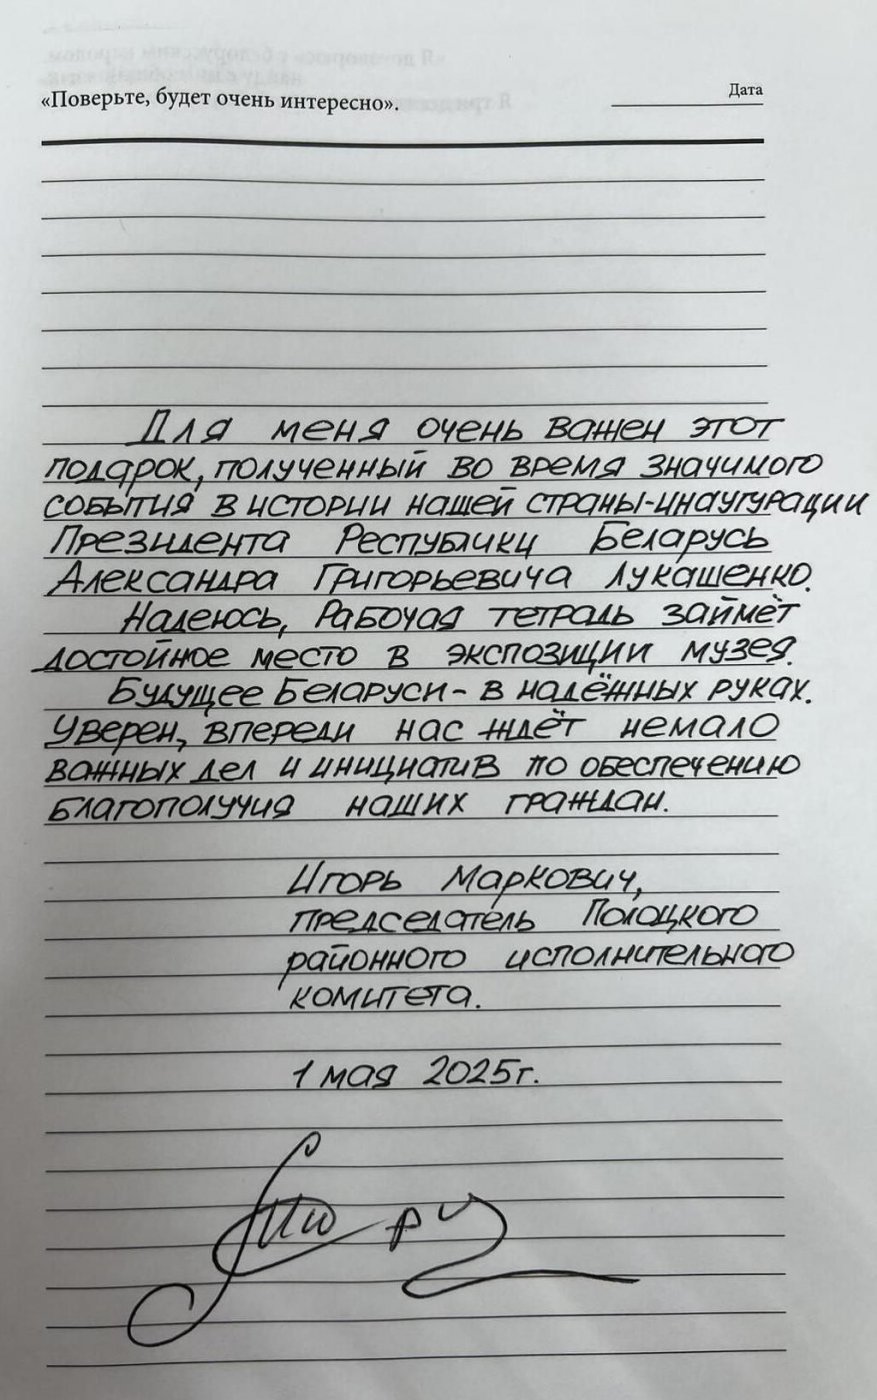 «Поверьте, будет очень интересно».
Дата
Для меня очень важен этот
подарок, полученный во время значимого
события в истории нашей страны-инаугурации
Президента Республики Беларусь
Александра Григорьевича Лукашенко.
Надеюсь, Рабочая тетрадь займёт
достойное место в экспозиции музея.
Будущее Беларуси - в надёжных руках.
Уверен, впереди нас ждёт немало
важных дел и инициатив по обеспечению
благополучия наших граждан.
Игорь Маркович,
председатель Полоцкого
районного исполнительного
комитета.
1 мая 2025г.